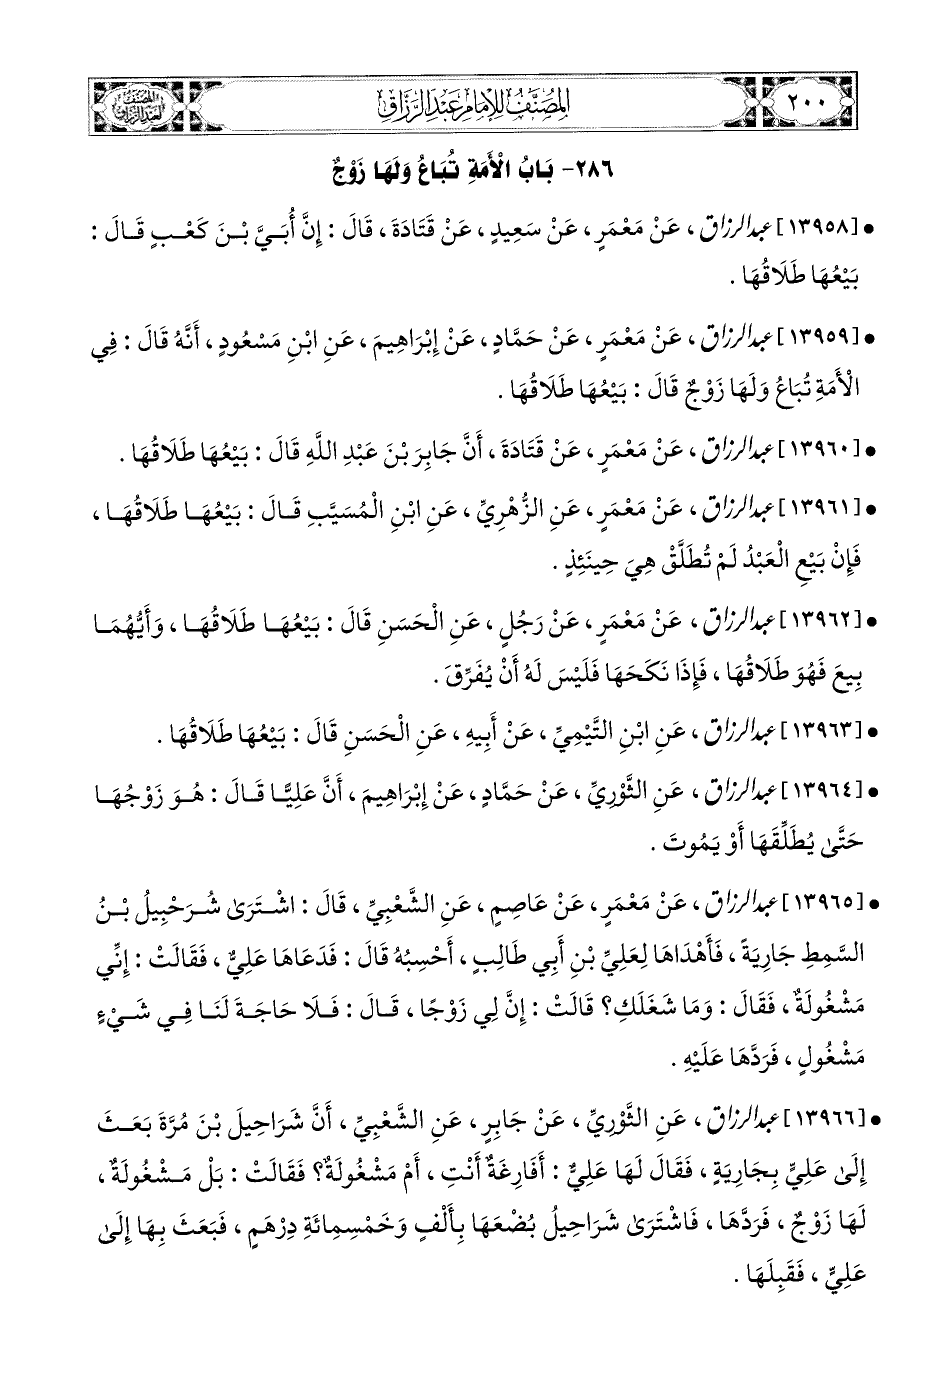 ٢٠٠
المصنف للإمام عبد الرزاق
المصنف
لعبد الرزاق
٢٨٦- بَابُ الْأَمَةِ تُبَاعُ وَلَهَا زَوْجٌ
• [١٣٩٥٨] عبد الرزاق، عَنْ مَعْمَرٍ، عَنْ سَعِيدٍ، عَنْ قَتَادَةَ، قَالَ: إِنَّ أُبَيَّ بْنَ كَعْبٍ قَالَ:
بَيْعُهَا طَلَاقُهَا.
• [١٣٩٥٩] عبد الرزاق، عَنْ مَعْمَرٍ، عَنْ حَمَّادٍ، عَنْ إِبْرَاهِيمَ، عَنِ ابْنِ مَسْعُودٍ، أَنَّهُ قَالَ: فِي
الْأَمَةِ تُبَاعُ وَلَهَا زَوْجٌ قَالَ: بَيْعُهَا طَلَاقُهَا.
• [١٣٩٦٠] عبد الرزاق، عَنْ مَعْمَرٍ، عَنْ قَتَادَةَ، أَنَّ جَابِرَ بْنَ عَبْدِ اللَّهِ قَالَ: بَيْعُهَا طَلَاقُهَا.
• [١٣٩٦١] عبد الرزاق، عَنْ مَعْمَرٍ، عَنِ الزُّهْرِيِّ، عَنِ ابْنِ الْمُسَيَّبِ قَالَ: بَيْعُهَا طَلَاقُهَا،
فَإِنْ بَيْعِ الْعَبْدُ لَمْ تُطَلَّقْ هِيَ حِينَئِذٍ.
• [١٣٩٦٢] عبد الرزاق، عَنْ مَعْمَرٍ، عَنْ رَجُلٍ، عَنِ الْحَسَنِ قَالَ: بَيْعُهَا طَلَاقُهَا، وَأَيُّهُمَا
بِيعَ فَهُوَ طَلَاقُهَا، فَإِذَا نَكَحَهَا فَلَيْسَ لَهُ أَنْ يُفَرِّقَ.
• [١٣٩٦٣] عبد الرزاق، عَنِ ابْنِ التَّيْمِيِّ، عَنْ أَبِيهِ، عَنِ الْحَسَنِ قَالَ: بَيْعُهَا طَلَاقُهَا.
• [١٣٩٦٤] عبد الرزاق، عَنِ الثَّوْرِيِّ، عَنْ حَمَّادٍ، عَنْ إِبْرَاهِيمَ، أَنَّ عَلِيًّا قَالَ: هُوَ زَوْجُهَا
حَتَّى يُطَلِّقَهَا أَوْ يَمُوتَ.
• [١٣٩٦٥] عبد الرزاق، عَنْ مَعْمَرٍ، عَنْ عَاصِمٍ، عَنِ الشَّعْبِيِّ، قَالَ: اشْتَرَى شُرَحْبِيلُ بْنُ
السَّمِطِ جَارِيَةً، فَأَهْدَاهَا لِعَلِيِّ بْنِ أَبِي طَالِبٍ، أَحْسِبُهُ قَالَ: فَدَعَاهَا عَلِيٌّ، فَقَالَتْ: إِنِّي
مَشْغُولَةٌ، فَقَالَ: وَمَا شَغَلَكِ؟ قَالَتْ: إِنَّ لِي زَوْجًا، قَالَ: فَلَا حَاجَةَ لَنَا فِي شَيْءٍ
مَشْغُولٍ، فَرَدَّهَا عَلَيْهِ.
• [١٣٩٦٦] عبد الرزاق، عَنِ الثَّوْرِيِّ، عَنْ جَابِرٍ، عَنِ الشَّعْبِيِّ، أَنَّ شَرَاحِيلَ بْنَ مُرَّةَ بَعَثَ
إِلَى عَلِيٍّ بِجَارِيَةٍ، فَقَالَ لَهَا عَلِيٌّ: أَفَارِغَةٌ أَنْتِ، أَمْ مَشْغُولَةٌ؟ فَقَالَتْ: بَلْ مَشْغُولَةٌ،
لَهَا زَوْجٌ، فَرَدَّهَا، فَاشْتَرَى شَرَاحِيلُ بُضْعَهَا بِأَلْفٍ وَخَمْسِمِائَةِ دِرْهَمٍ، فَبَعَثَ بِهَا إِلَى
عَلِيٍّ، فَقَبِلَهَا.